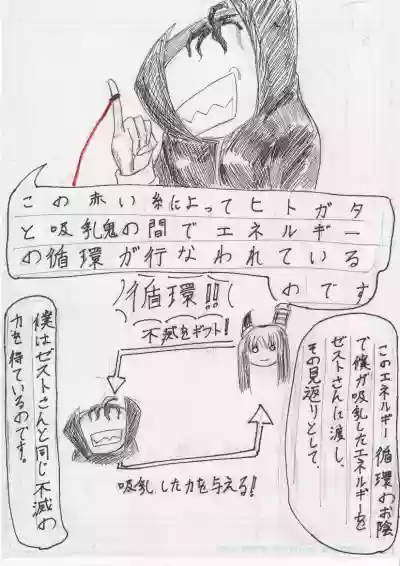 この赤い糸によってヒトガタ
と吸乳鬼の間でエネルギー
の循環が行なわれている
のです
循環!!
不滅をギフト!
このエネルギー循環のお陰
で僕が吸乳したエネルギーを
ゼストさんに渡し、
その見返りとして、
吸乳した力を与える!
僕はゼストさんと同じ不滅の
力を得ているのです。